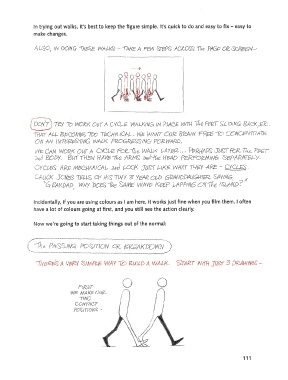 In trying out walks, it's best to keep the figure simple. It's quick to do and easy to fix – easy to
make changes.
ALSO, IN DOING THESE WALKS – TAKE A FEW STEPS ACROSS THE PAGE OR SCREEN –
DON'T TRY TO WORK OUT A CYCLE WALKING IN PLACE WITH THE FEET SLIDING BACK, ETC.
THAT ALL BECOMES TOO TECHNICAL. WE WANT OUR BRAIN FREE TO CONCENTRATE
ON AN INTERESTING WALK PROGRESSING FORWARD.
WE CAN WORK OUT A CYCLE FOR THE WALK LATER... PERHAPS JUST FOR THE FEET
and BODY. BUT THEN HAVE THE ARMS and the HEAD PERFORMING SEPARATELY.
CYCLES ARE MECHANICAL and LOOK JUST LIKE WHAT THEY ARE – CYCLES.
CHUCK JONES TELLS OF HIS TINY 3 YEAR OLD GRANDDAUGHTER SAYING,
"GRANDAD, WHY DOES THE SAME WAVE KEEP LAPPING ON THE ISLAND?"
Incidentally, if you are using colours as I am here, it works just fine when you film them. I often
have a lot of colours going at first, and you still see the action clearly.
Now we're going to start taking things out of the normal:
The PASSING POSITION OR BREAKDOWN
THERE'S A VERY SIMPLE WAY TO BUILD A WALK. START WITH JUST 3 DRAWINGS –
FIRST
WE MAKE OUR
TWO
CONTACT
POSITIONS –
111